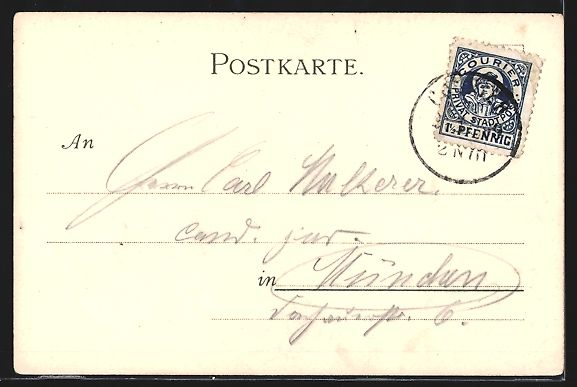 POSTKARTE.
COURIER
PRIVAT STADTPOST
1½ PFENNIG
2 N
An
Herrn Carl Walterer.
cand. jur.
in München
6.